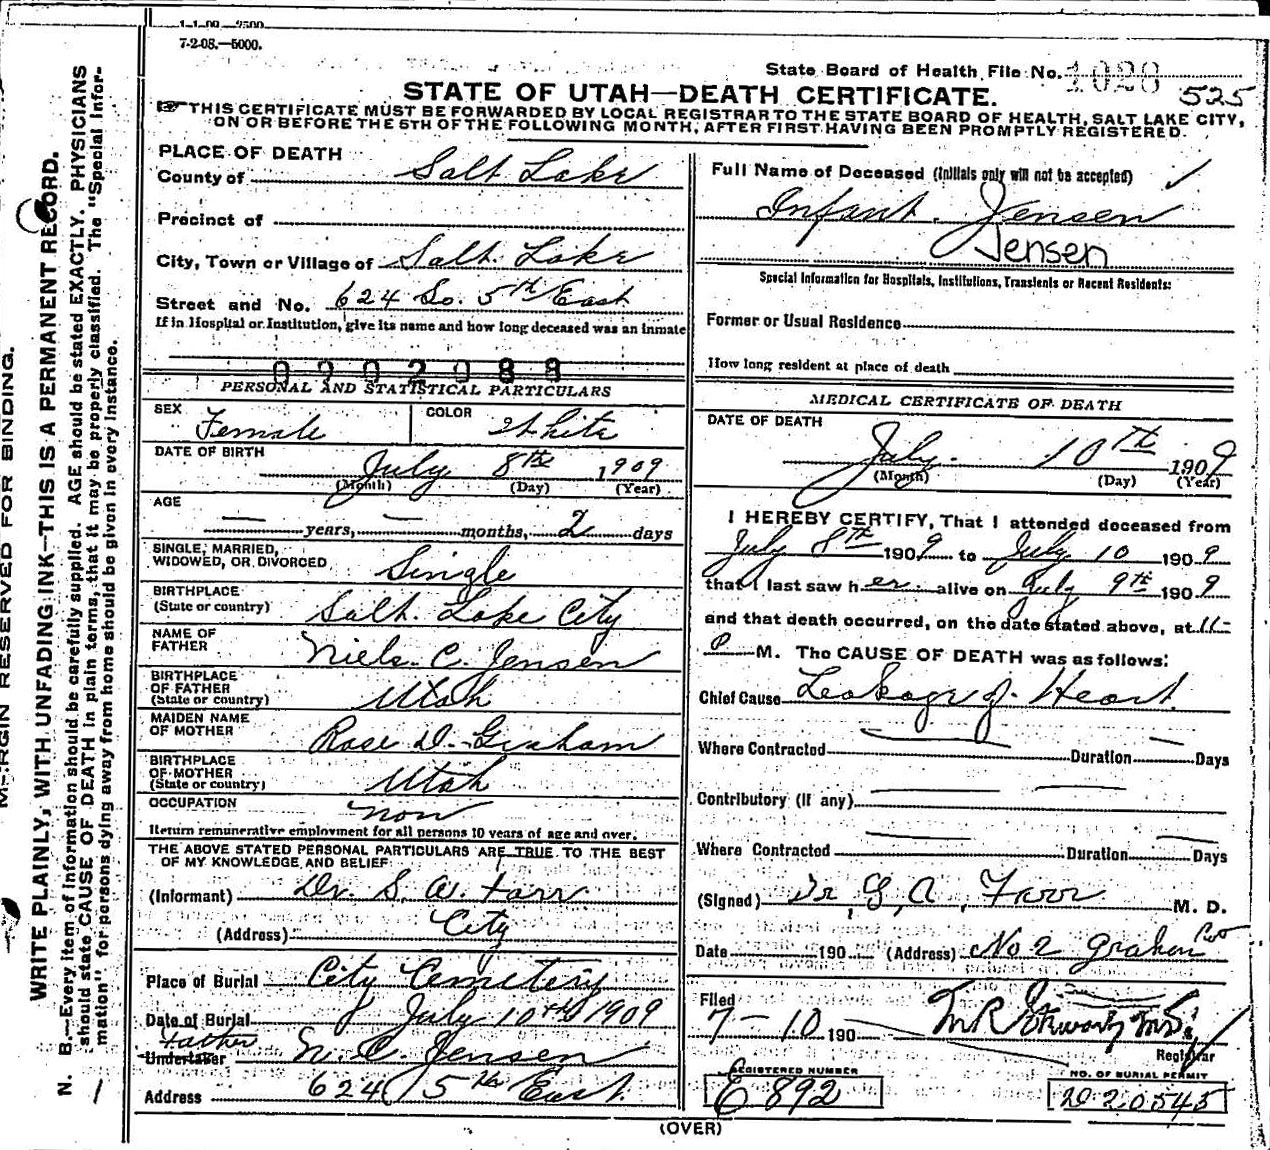 1-1-09—2500
7-2-08.—5000.
State Board of Health File No. 1028
525
STATE OF UTAH—DEATH CERTIFICATE.
THIS CERTIFICATE MUST BE FORWARDED BY LOCAL REGISTRAR TO THE STATE BOARD OF HEALTH, SALT LAKE CITY,
ON OR BEFORE THE 5TH OF THE FOLLOWING MONTH, AFTER FIRST HAVING BEEN PROMPTLY REGISTERED.
PLACE OF DEATH
County of Salt Lake
Precinct of
City, Town or Village of Salt Lake
Street and No. 624 So. 5th East
If in Hospital or Institution, give its name and how long deceased was an inmate
0202088
PERSONAL AND STATISTICAL PARTICULARS
SEX Female COLOR White
DATE OF BIRTH
July 8th 1909
(Month) (Day) (Year)
AGE
— years, — months, 2 days
SINGLE, MARRIED,
WIDOWED, OR DIVORCED Single
BIRTHPLACE
(State or country) Salt Lake City
NAME OF
FATHER Niels C. Jensen
BIRTHPLACE
OF FATHER
(State or country) Utah
MAIDEN NAME
OF MOTHER Rose D. Graham
BIRTHPLACE
OF MOTHER
(State or country) Utah
OCCUPATION non
Return remunerative employment for all persons 10 years of age and over.
THE ABOVE STATED PERSONAL PARTICULARS ARE TRUE TO THE BEST
OF MY KNOWLEDGE AND BELIEF
(Informant) Dr. S. W. Farr
(Address) City
Place of Burial City Cemetery
Date of Burial July 10th 1909
Father
Undertaker N. C. Jensen
Address 624 5th East
Full Name of Deceased (Initials only will not be accepted)
Infant Jensen
Jensen
Special Information for Hospitals, Institutions, Transients or Recent Residents:
Former or Usual Residence
How long resident at place of death
MEDICAL CERTIFICATE OF DEATH
DATE OF DEATH
July 10th 1909
(Month) (Day) (Year)
I HEREBY CERTIFY, That I attended deceased from
July 8th 1909 to July 10 1909
that I last saw her alive on July 9th 1909
and that death occurred, on the date stated above, at 11-
P M. The CAUSE OF DEATH was as follows:
Chief Cause Leakage of Heart
Where Contracted — Duration — Days
Contributory (if any) — —
Where Contracted — Duration — Days
(Signed) Dr, G, A, Farr M. D.
Date 190 (Address) No 2 Graham
Filed
7-10 190
Registrar
REGISTERED NUMBER
E 892
NO. OF BURIAL PERMIT
D 20545
(OVER)
MARGIN RESERVED FOR BINDING.
WRITE PLAINLY, WITH UNFADING INK—THIS IS A PERMANENT RECORD.
N. B.—Every item of information should be carefully supplied. AGE should be stated EXACTLY. PHYSICIANS
should state CAUSE OF DEATH in plain terms, that it may be properly classified. The "Special Infor-
mation" for persons dying away from home should be given in every instance.